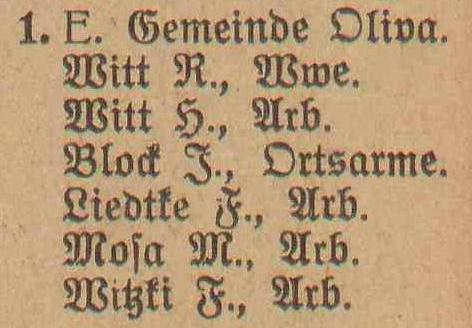 1. E. Gemeinde Oliva.
Witt R., Wwe.
Witt H., Arb.
Block J., Ortsarme.
Liedtke F., Arb.
Moſa M., Arb.
Witzki F., Arb.